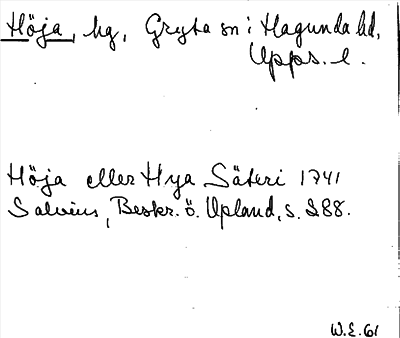 Höja, hg, Gryta sn i Hagunda hd,
Upps. l.
Höja eller Hya Säteri 1741
Salvius, Beskr. ö. Upland, s. 288.
W.E. 61